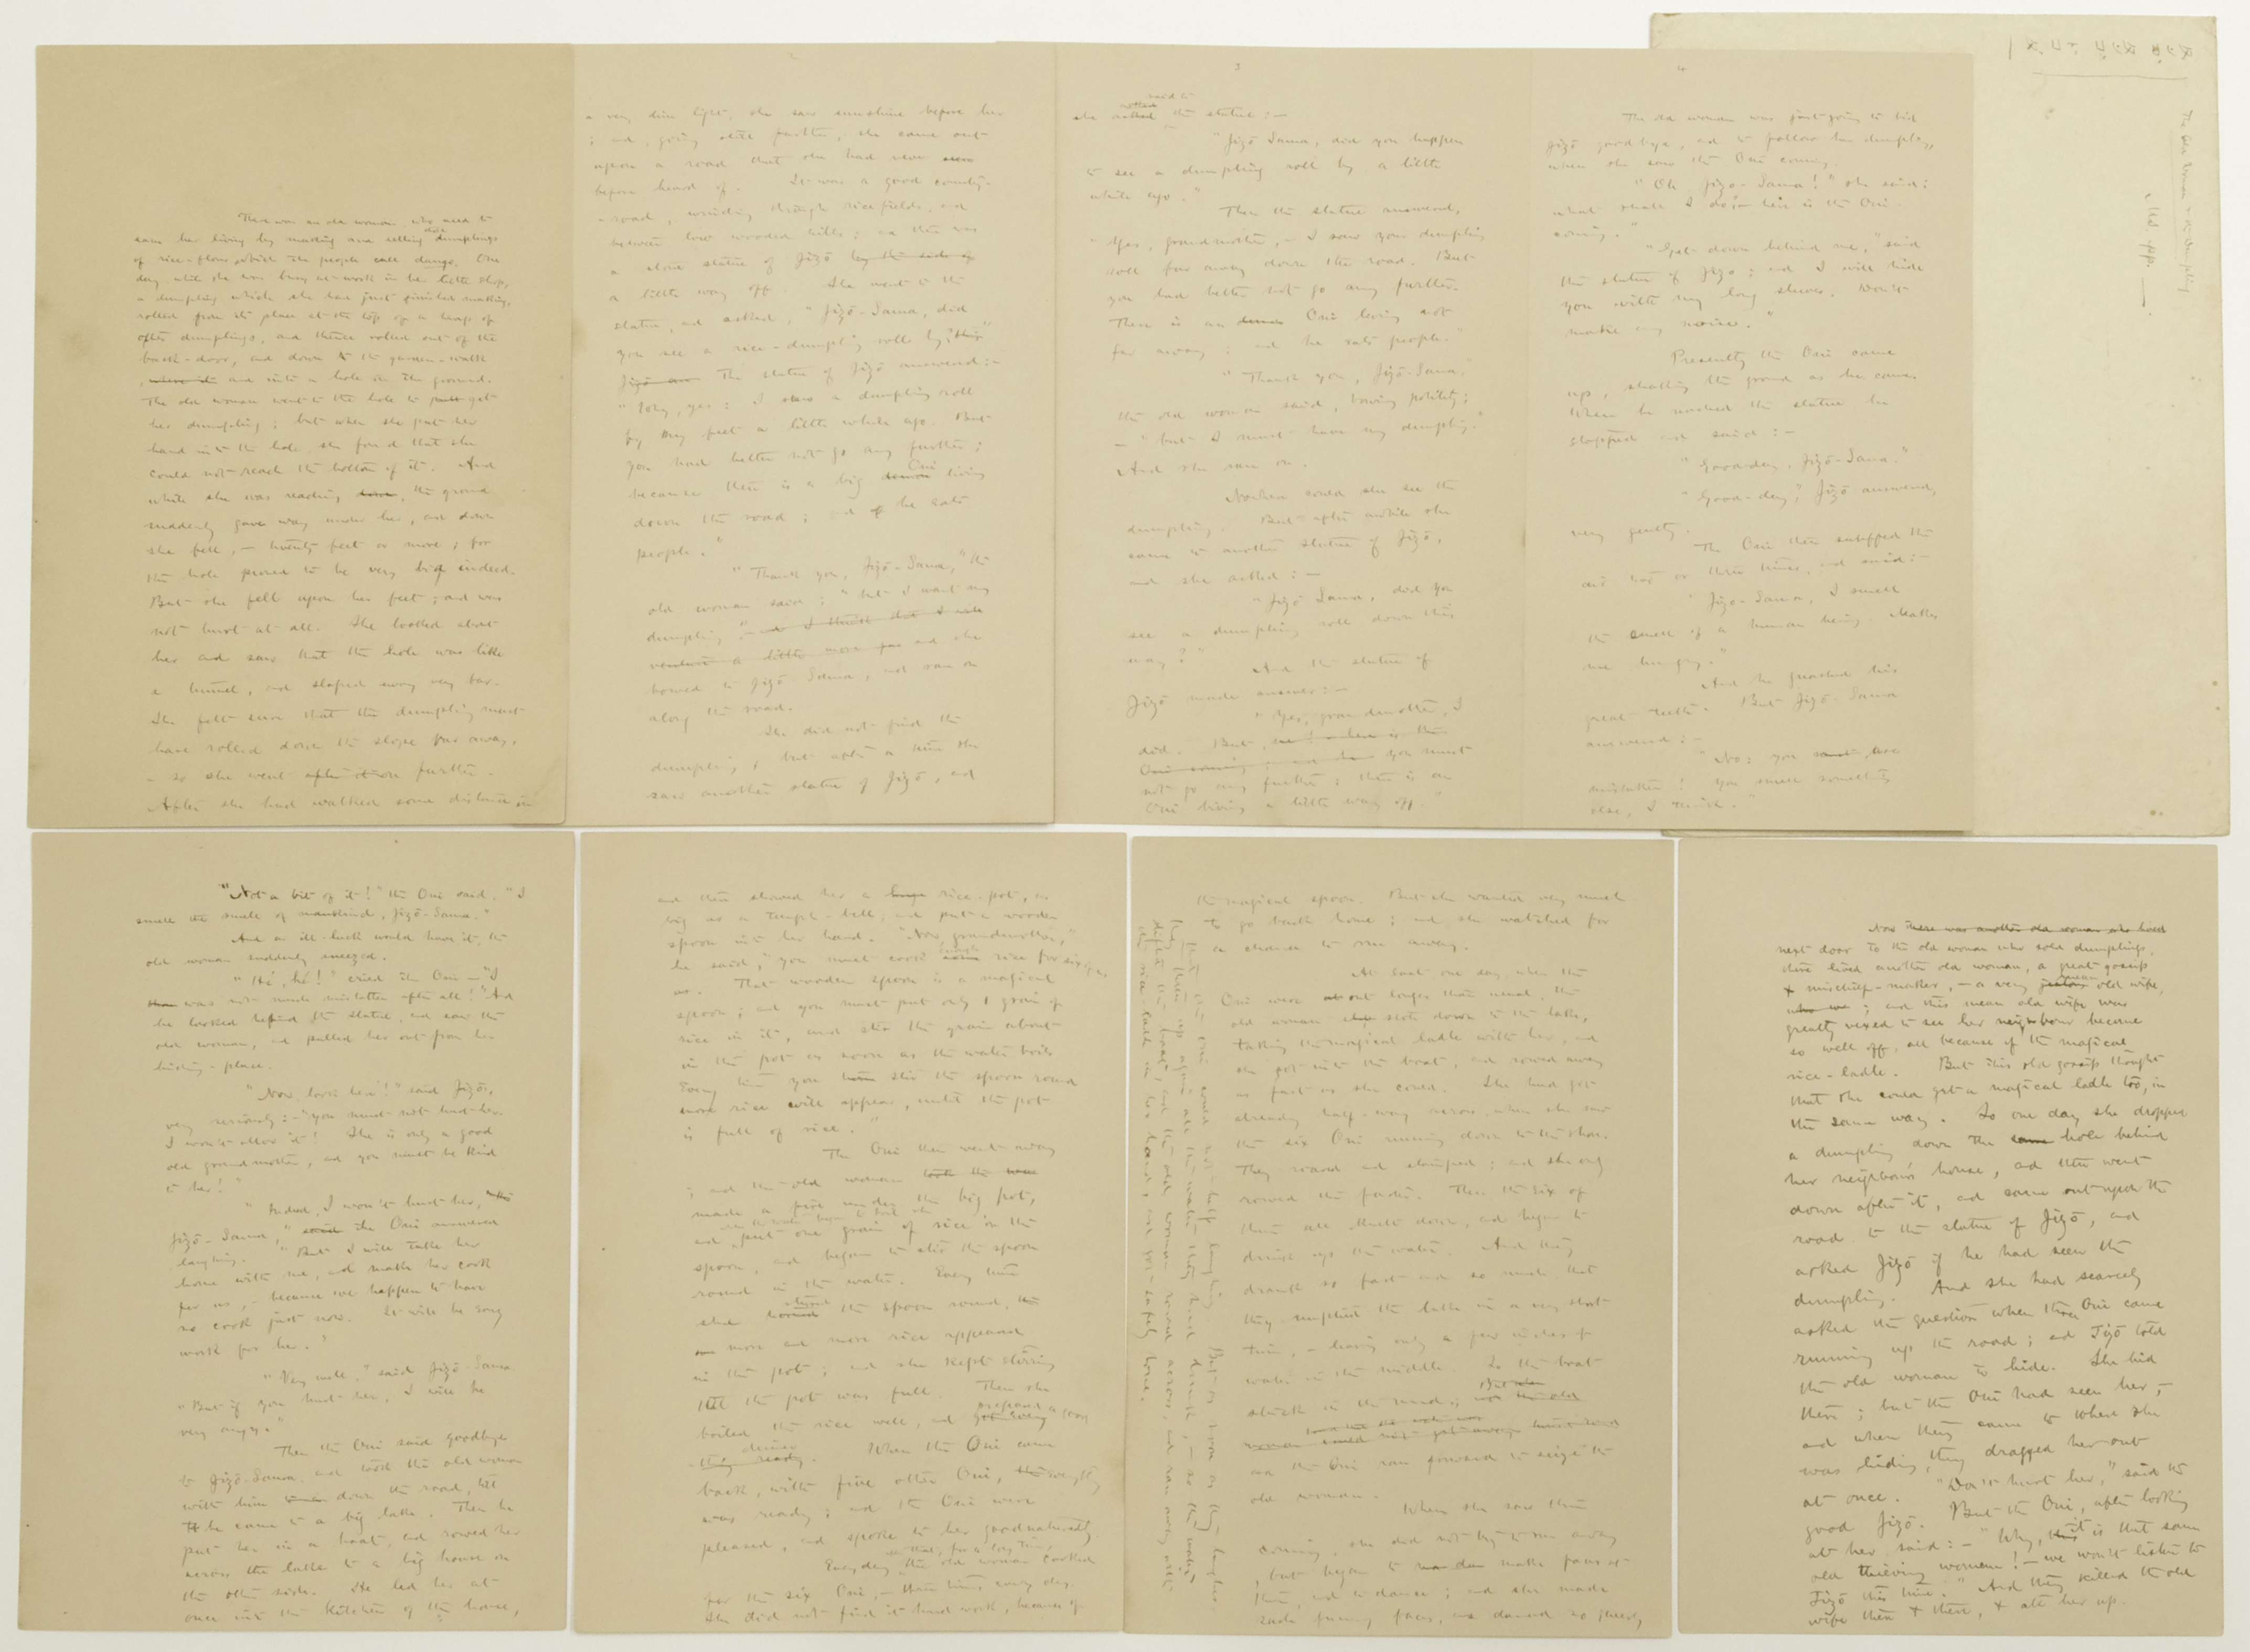 There was an old woman, who used to
earn her living by making and selling dumplings
of rice-flour, which the people call dango. One
day while she was busy at work in her little shop,
a dumpling which she had just finished making,
rolled from its place at the top of a heap of
other dumplings, and thence rolled out of the
back-door, and down the garden-walk
, where it and into a hole in the ground.
The old woman went to the hole to get
her dumpling; but when she put her
hand into the hole, she found that she
could not reach the bottom of it. And
while she was reaching down, the ground
suddenly gave way under her, and down
she fell, — twenty feet or more; for
the hole proved to be very big indeed.
But she fell upon her feet; and was
not hurt at all. She looked about
her and saw that the hole was like
a tunnel, and sloped away very far.
She felt sure that the dumpling must
have rolled down the slope far away,
- so she went after it on further.
After she had walked some distance in
2
a very dim light, she saw sunshine before her
; and, going still further, she came out
upon a road that she had never seen
before heard of. It was a good country-
-road, winding through ricefields, and
between low wooded hills; and there was
a stone statue of Jizō by the side of
a little way off. She went to the
statue, and asked, "Jizō-Sama, did
you see a rice-dumpling roll by this
The statue of Jizō answered:-
"Why, yes: I saw a dumpling roll
by my feet a little while ago. But
you had better not go any further;
because there is a big demon Oni living
down the road; and he eats
people."
"Thank you, Jizō-Sama," the
old woman said; "but I want my
dumpling" - and I think that I will
venture a little more far and she
bowed to Jizō-Sama, and ran on
along the road.
She did not find the
dumpling; but after a time she
saw another statue of Jizō, and
3
said to
she asked the statue:—
"Jizō Sama, did you happen
to see a dumpling roll by a little
while ago."
Then the statue answered,
"Yes, grandmother, - I saw your dumpling
roll far away down the road. But
you had better not go any further.
There is an demon Oni living not
far away; and he eats people."
"Thank you, Jizō-Sama,"
the old woman said, bowing politely;
—"but I must have my dumpling."
And she ran on.
Nowhere could she see the
dumpling. But after awhile she
came to another statue of Jizō,
and she asked:—
"Jizō Sama, did you
see a dumpling roll down this
way?"
And the statue of
Jizō made answer:—
"Yes, grandmother, I
did. But, here is the
Oni coming; and you must
not go any further: there is an
Oni living a little way off."
4
The old woman was just going to bid
Jizō goodbye, and to follow her dumpling,
when she saw the Oni coming.
"Oh Jizō-Sama!" she said:
what shall I do;— here is the Oni
coming."
"Get down behind me," said
the statue of Jizō; and I will hide
you with my long sleeves. Don't
make any noise."
Presently the Oni came
up, shaking the ground as he came.
When he reached the statue he
stopped and said:—
"Good-day, Jizō-Sama."
"Good-day," Jizō answered,
very gently.
The Oni then sniffed the
air two or three times, and said:—
"Jizō-Sama, I smell
the smell of a human being. Makes
me hungry."
And he gnashed his
great teeth. But Jizō-Sama
answered:—
"No: you are
mistaken! You smell something
else, I think."
The Old Woman & her Dumpling
"Not a bit of it!" the Oni said. "I
smell the smell of mankind, Jizō-Sama."
And as ill-luck would have it, the
old woman suddenly sneezed.
"Hé, hé!" cried the Oni —"I
was not much mistaken after all!" And
he looked behind the statue, and saw the
old woman, and pulled her out from her
hiding-place.
"Now, look here!" said Jizō,
very seriously:—"you must not hurt her.
I won't allow it! She is only a good
old grandmother, and you must be kind
to her!"
"Indeed, I won't hurt her,
Jizō-Sama," said the Oni answered
laughing. "But I will take her
home with me, and make her cook
for us, — because we happen to have
no cook just now. It will be easy
work for her."
"Very well," said Jizō-Sama
"But if you hurt her, I will be
very angry."
Then the Oni said goodbye
to Jizō-Sama and took the old woman
with him down the road, till
he came to a big lake. Then he
put her in a boat, and rowed her
across the lake to a big house on
the other side. He led her at
once into the kitchen of the house,
and then showed her a huge rice-pot, as
big as a temple-bell, and put a wooden
spoon into her hand. "Now, grandmother,"
he said, "you must cook enough rice for six of
us. That wooden spoon is a magical
spoon; and you must put only 1 grain of
rice in it, and stir the grain about
in the pot as soon as the water boils
Every time you stir the spoon round
more rice will appear, until the pot
is full of rice."
The Oni then went away
; and the old woman took the
made a fire under the big pot,
when the water began to boil she
and put one grain of rice in the
spoon, and began to stir the spoon
round in the water. Every time
she turned stirred the spoon round,
more and more rice appeared
in the pot; and she kept stirring
till the pot was full. Then she
boiled the rice well, and got every prepared a good
thing ready dinner. When the Oni came
back, with five other Oni, everything
was ready; and the Oni were
pleased, and spoke to her goodnaturedly.
Every day after that, for a long time, the old woman cooked
for the six Oni, — three times every day.
She did not find it hard work, because of
the magical spoon. But she wanted very much
to go back home; and she watched for
a chance to run away.
At last one day, when the
Oni were out longer than usual, the
old woman stole down to the lake,
taking the magical ladle with her, and
she got into the boat, and rowed away
as fast as she could. She had got
already half-way across, when she saw
the six Oni running down to the shore.
They roared and stamped; and she only
rowed the faster. Then the six of
them all knelt down, and began to
drink up the water. And they
drank so fast and so much that
they emptied the lake in a very short
time, — leaving only a few inches of
water in the middle. So the boat
stuck in the mud;
woman could not get away
and the Oni ran forward to seize the
old woman.
When she saw them
coming, she did not try to run away
, but began to make faces at
them, and to dance; and she made
such funny faces, and danced so queerly
that the Oni could not help laughing. But as soon as they laughed,
they threw up again all the water they had drunk, — so the water
lifted the boat, and the old woman rowed across, and ran away with
the rice-ladle in her hand, and got safely home.
Now there was another old woman who lived
next door to the old woman who sold dumplings,
there lived another old woman, a great gossip
& mischief-maker, — a very jealous mean old wife,
who was; and this mean old wife was
greatly vexed to see her neighbour become
so well off, all because of the magical
rice-ladle. But this old gossip thought
that she could get a magical ladle too, in
the same way. So one day she dropped
a dumpling down the same hole behind
her neighbour's house, and then went
down after it, and came out upon the
road to the statue of Jizō, and
asked Jizō if he had seen the
dumpling. And she had scarcely
asked the question when three Oni came
running up the road; and Jizō told
the old woman to hide. She hid
there; but the Oni had seen her, —
and when they came to where she
was hiding, they dragged her out
at once. "Don't hurt her," said the
good Jizō. But the Oni, after looking
at her, said:— "Why, it is that same
old thieving woman! — we won't listen to
Jizō this time." And they killed the old
wife then & there, & ate her up.